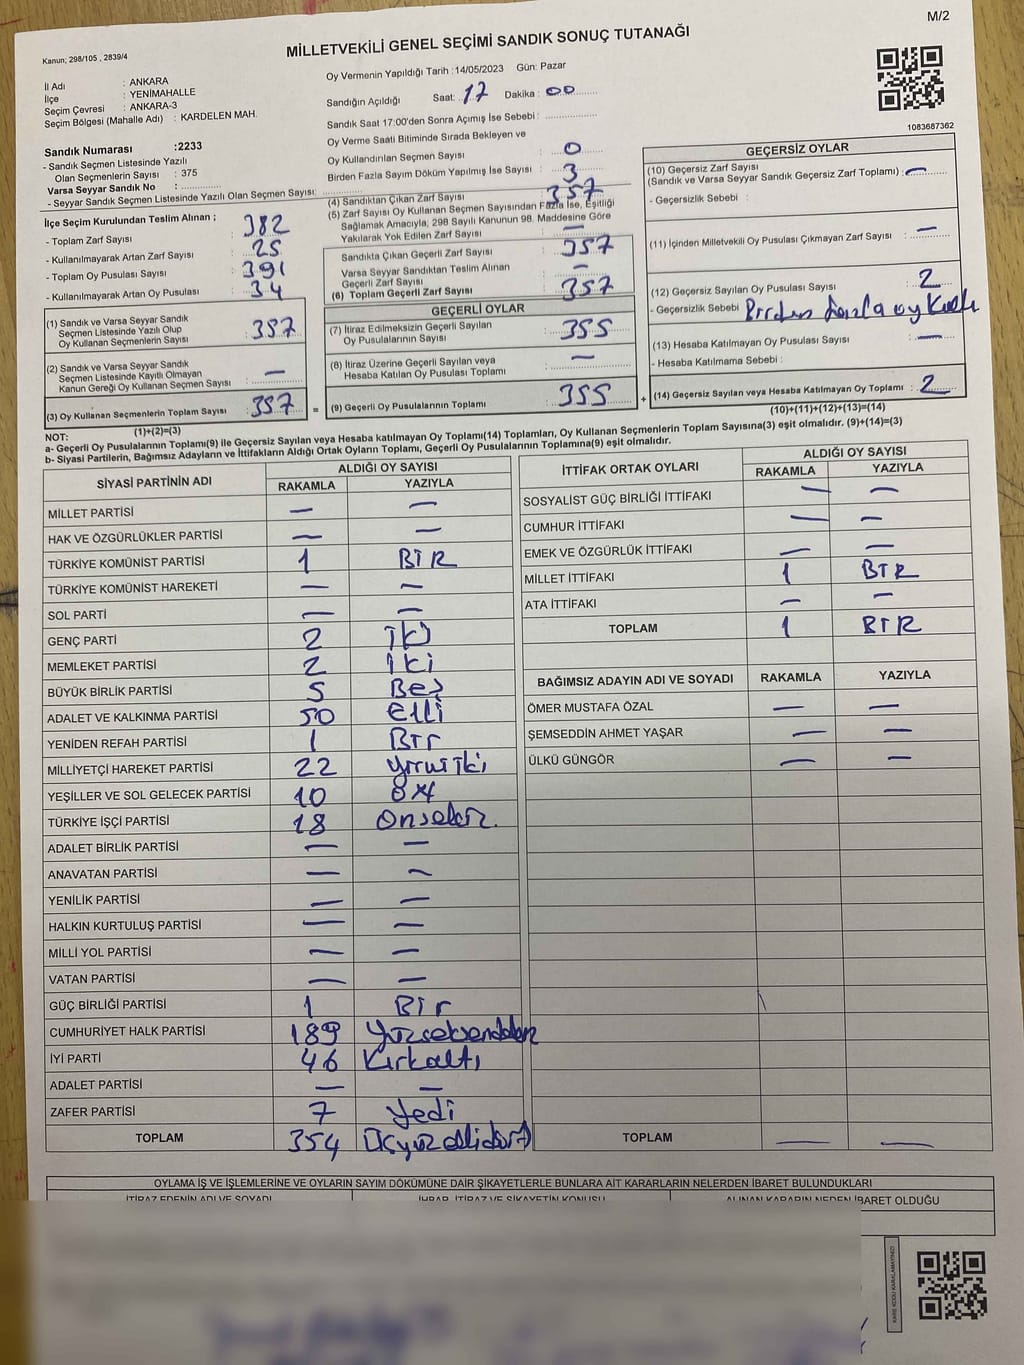 M/2
Kanun; 298/105 , 2839/4
MİLLETVEKİLİ GENEL SEÇİMİ SANDIK SONUÇ TUTANAĞI
İl Adı : ANKARA
İlçe : YENİMAHALLE
Seçim Çevresi : ANKARA-3
Seçim Bölgesi (Mahalle Adı) : KARDELEN MAH.
Sandık Numarası :2233
- Sandık Seçmen Listesinde Yazılı
Olan Seçmenlerin Sayısı : 375
Varsa Seyyar Sandık No :
- Seyyar Sandık Seçmen Listesinde Yazılı Olan Seçmen Sayısı:
Oy Vermenin Yapıldığı Tarih :14/05/2023 Gün: Pazar
Sandığın Açıldığı Saat: 17 Dakika : 00
Sandık Saat 17:00'den Sonra Açımış İse Sebebi :
Oy Verme Saati Bitiminde Sırada Bekleyen ve
Oy Kullandırılan Seçmen Sayısı : 0
Birden Fazla Sayım Döküm Yapılmış İse Sayısı : 3
1083687362
İlçe Seçim Kurulundan Teslim Alınan ;
- Toplam Zarf Sayısı : 382
- Kullanılmayarak Artan Zarf Sayısı : 25
- Toplam Oy Pusulası Sayısı : 391
- Kullanılmayarak Artan Oy Pusulası : 34
(1) Sandık ve Varsa Seyyar Sandık
Seçmen Listesinde Yazılı Olup
Oy Kullanan Seçmenlerin Sayısı : 357
(2) Sandık ve Varsa Seyyar Sandık
Seçmen Listesinde Kayıtlı Olmayan
Kanun Gereği Oy Kullanan Seçmen Sayısı : —
(3) Oy Kullanan Seçmenlerin Toplam Sayısı : 357
(1)+(2)=(3)
(4) Sandıktan Çıkan Zarf Sayısı : 357
(5) Zarf Sayısı Oy Kullanan Seçmen Sayısından Fazla İse, Eşitliği
Sağlamak Amacıyla; 298 Sayılı Kanunun 98. Maddesine Göre
Yakılarak Yok Edilen Zarf Sayısı : —
Sandıkta Çıkan Geçerli Zarf Sayısı : 357
Varsa Seyyar Sandıktan Teslim Alınan
Geçerli Zarf Sayısı : —
(6) Toplam Geçerli Zarf Sayısı : 357
GEÇERLİ OYLAR
(7) İtiraz Edilmeksizin Geçerli Sayılan
Oy Pusulalarının Sayısı : 355
(8) İtiraz Üzerine Geçerli Sayılan veya
Hesaba Katılan Oy Pusulası Toplamı : —
= (9) Geçerli Oy Pusulalarının Toplamı : 355
GEÇERSİZ OYLAR
(10) Geçersiz Zarf Sayısı
(Sandık ve Varsa Seyyar Sandık Geçersiz Zarf Toplamı) : —
- Geçersizlik Sebebi :
(11) İçinden Milletvekili Oy Pusulası Çıkmayan Zarf Sayısı : —
(12) Geçersiz Sayılan Oy Pusulası Sayısı : 2
- Geçersizlik Sebebi : Birden fazla oy
(13) Hesaba Katılmayan Oy Pusulası Sayısı : —
- Hesaba Katılmama Sebebi :
+ (14) Geçersiz Sayılan veya Hesaba Katılmayan Oy Toplamı : 2
(10)+(11)+(12)+(13)=(14)
NOT:
a- Geçerli Oy Pusulalarının Toplamı(9) ile Geçersiz Sayılan veya Hesaba katılmayan Oy Toplamı(14) Toplamları, Oy Kullanan Seçmenlerin Toplam Sayısına(3) eşit olmalıdır. (9)+(14)=(3)
b- Siyasi Partilerin, Bağımsız Adayların ve İttifakların Aldığı Ortak Oyların Toplamı, Geçerli Oy Pusulalarının Toplamına(9) eşit olmalıdır.
SİYASİ PARTİNİN ADI ALDIĞI OY SAYISI
RAKAMLA YAZIYLA
MİLLET PARTİSİ — —
HAK VE ÖZGÜRLÜKLER PARTİSİ — —
TÜRKİYE KOMÜNİST PARTİSİ 1 BİR
TÜRKİYE KOMÜNİST HAREKETİ — —
SOL PARTİ — —
GENÇ PARTİ 2 İki
MEMLEKET PARTİSİ 2 İki
BÜYÜK BİRLİK PARTİSİ 5 Beş
ADALET VE KALKINMA PARTİSİ 50 elli
YENİDEN REFAH PARTİSİ 1 Bir
MİLLİYETÇİ HAREKET PARTİSİ 22 yirmiiki
YEŞİLLER VE SOL GELECEK PARTİSİ 10 on
TÜRKİYE İŞÇİ PARTİSİ 18 Onsekiz
ADALET BİRLİK PARTİSİ — —
ANAVATAN PARTİSİ — —
YENİLİK PARTİSİ — —
HALKIN KURTULUŞ PARTİSİ — —
MİLLİ YOL PARTİSİ — —
VATAN PARTİSİ — —
GÜÇ BİRLİĞİ PARTİSİ 1 Bir
CUMHURİYET HALK PARTİSİ 189 Yüzseksendokuz
İYİ PARTİ 46 Kırkaltı
ADALET PARTİSİ — —
ZAFER PARTİSİ 7 Yedi
TOPLAM 354 Üçyüzellidört
İTTİFAK ORTAK OYLARI ALDIĞI OY SAYISI
RAKAMLA YAZIYLA
SOSYALİST GÜÇ BİRLİĞİ İTTİFAKI — —
CUMHUR İTTİFAKI — —
EMEK VE ÖZGÜRLÜK İTTİFAKI — —
MİLLET İTTİFAKI 1 BİR
ATA İTTİFAKI — —
TOPLAM 1 BİR
BAĞIMSIZ ADAYIN ADI VE SOYADI RAKAMLA YAZIYLA
ÖMER MUSTAFA ÖZAL — —
ŞEMSEDDİN AHMET YAŞAR — —
ÜLKÜ GÜNGÖR — —
TOPLAM — —
OYLAMA İŞ VE İŞLEMLERİNE VE OYLARIN SAYIM DÖKÜMÜNE DAİR ŞİKAYETLERLE BUNLARA AİT KARARLARIN NELERDEN İBARET BULUNDUKLARI
İTİRAZ EDENİN ADI VE SOYADI İHBAR, İTİRAZ VE ŞİKAYETİN KONUSU ALINAN KARARIN NEDEN İBARET OLDUĞU
KARE KODU KARALAMAYINIZ!